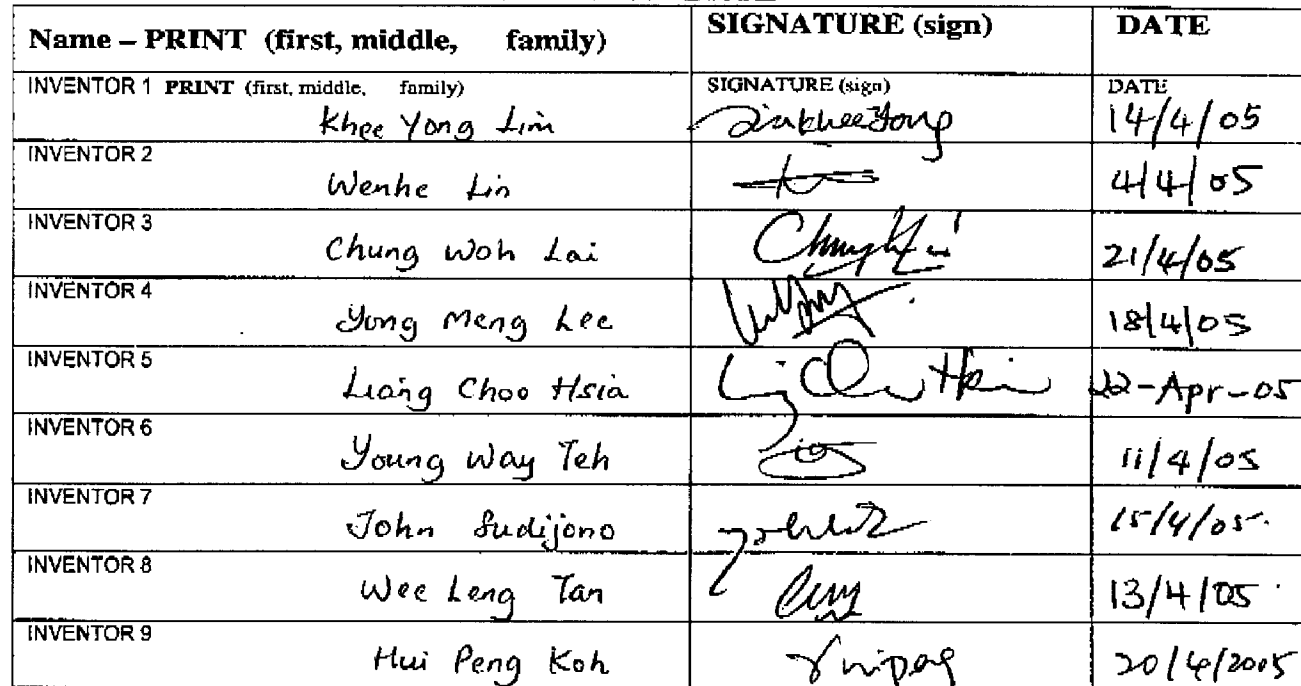 Name – PRINT (first, middle, family) SIGNATURE (sign) DATE
INVENTOR 1 PRINT (first, middle, family) SIGNATURE (sign) DATE
Khee Yong Lim 14/4/05
INVENTOR 2
Wenhe Lin 4/4/05
INVENTOR 3
Chung Woh Lai 21/4/05
INVENTOR 4
Yong Meng Lee 18/4/05
INVENTOR 5
Liang Choo Hsia 22-Apr-05
INVENTOR 6
Young Way Teh 11/4/05
INVENTOR 7
John Sudijono 15/4/05
INVENTOR 8
Wee Leng Tan 13/4/05
INVENTOR 9
Hui Peng Koh 20/4/2005